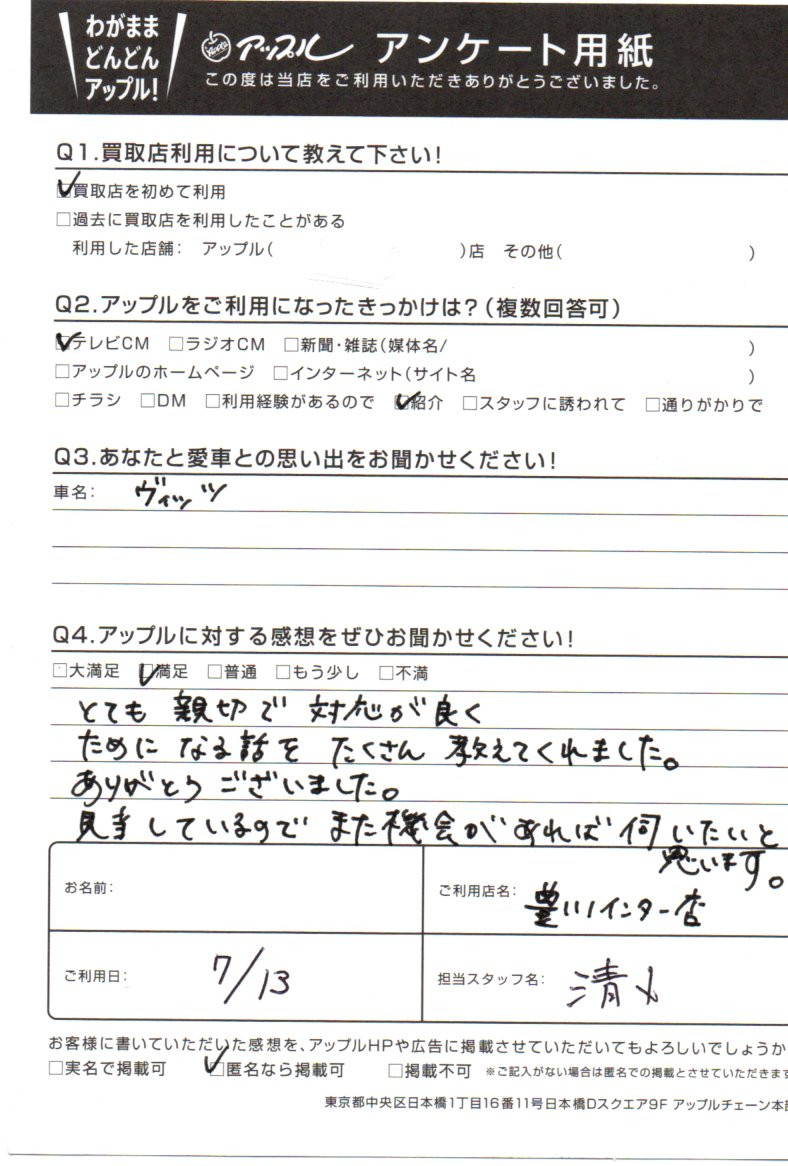 わがまま
どんどん
アップル!
アップル アンケート用紙
この度は当店をご利用いただきありがとうございました。
Q1.買取店利用について教えて下さい!
☑買取店を初めて利用
□過去に買取店を利用したことがある
利用した店舗: アップル( )店 その他( )
Q2.アップルをご利用になったきっかけは?(複数回答可)
☑テレビCM □ラジオCM □新聞・雑誌(媒体名/ )
□アップルのホームページ □インターネット(サイト名 )
□チラシ □DM □利用経験があるので ☑紹介 □スタッフに誘われて □通りがかりで
Q3.あなたと愛車との思い出をお聞かせください!
車名: ヴィッツ
Q4.アップルに対する感想をぜひお聞かせください!
□大満足 ☑満足 □普通 □もう少し □不満
とても 親切で 対応が良く
ために なる話を たくさん 教えてくれました。
ありがとう ございました。
見当しているので また機会があれば 伺いたいと
思います。
お名前:
ご利用店名: 豊川インター店
ご利用日: 7/13
担当スタッフ名: 清水
お客様に書いていただいた感想を、アップルHPや広告に掲載させていただいてもよろしいでしょうか
□実名で掲載可 ☑匿名なら掲載可 □掲載不可 ※ご記入がない場合は匿名での掲載とさせていただきます
東京都中央区日本橋1丁目16番11号日本橋Dスクエア9F アップルチェーン本